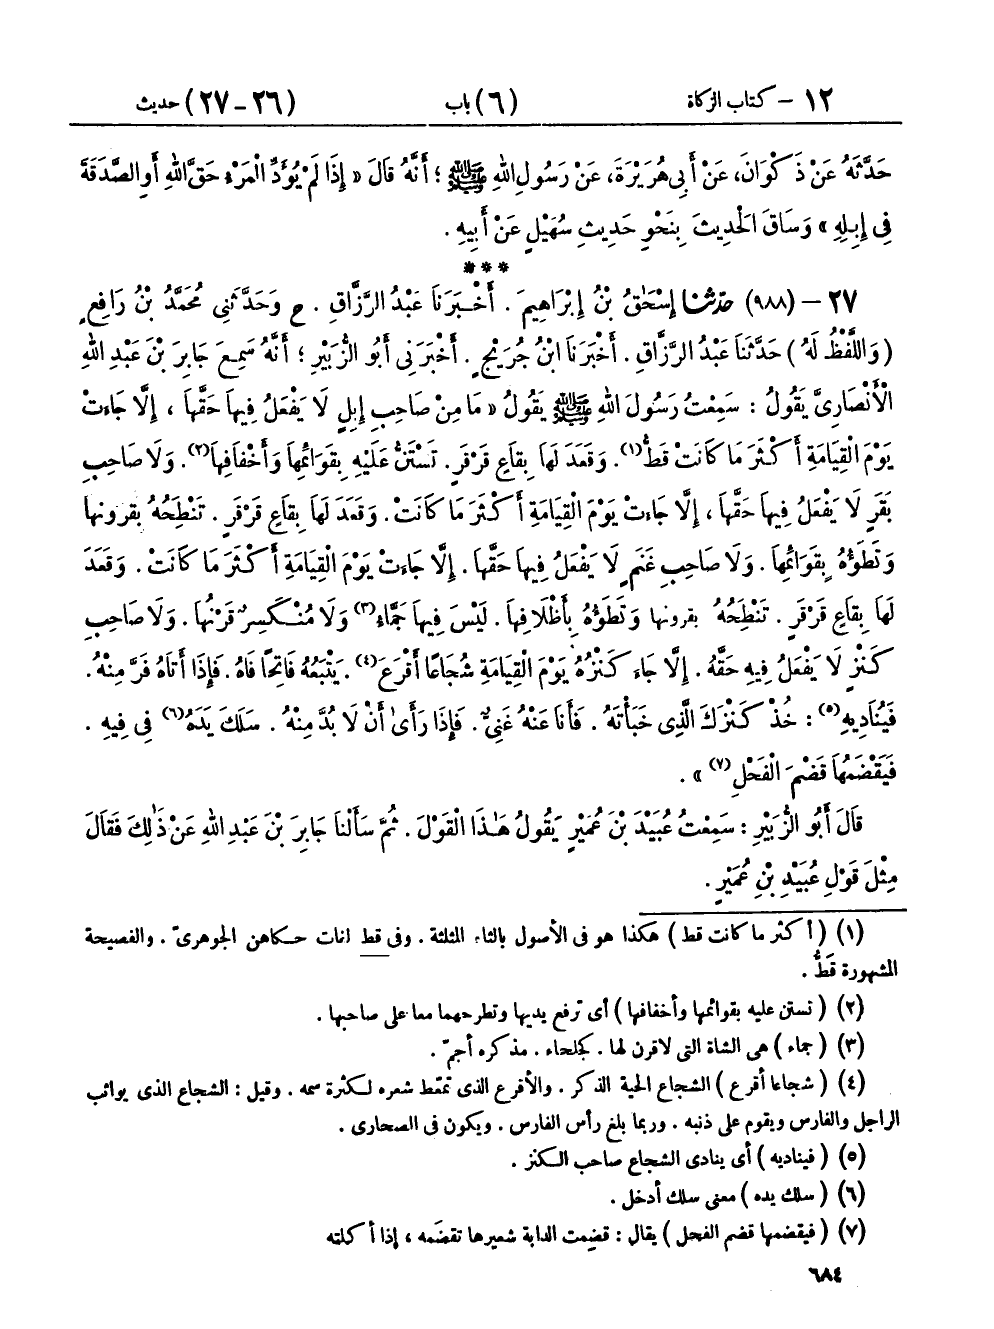 ١٢ – كتاب الزكاة (٦) باب (٢٦-٢٧) حديث
حَدَّثَهُ عَنْ ذَكْوَانَ، عَنْ أَبِي هُرَيْرَةَ، عَنْ رَسُولِ اللهِ ﷺ ؛ أَنَّهُ قَالَ « إِذَا لَمْ يُؤَدِّ الْمَرْءُ حَقَّ اللهِ أَوِ الصَّدَقَةَ
فِى إِبِلِهِ » وَسَاقَ الْحَدِيثَ بِنَحْوِ حَدِيثِ سُهَيْلٍ عَنْ أَبِيهِ .
***
٢٧ – (٩٨٨) حَدَّثَنَا إِسْحَٰقُ بْنُ إِبْرَاهِيمَ . أَخْبَرَنَا عَبْدُ الرَّزَّاقِ . ح وَحَدَّثَنِى مُحَمَّدُ بْنُ رَافِعٍ
( وَاللَّفْظُ لَهُ ) حَدَّثَنَا عَبْدُ الرَّزَّاقِ . أَخْبَرَنَا ابْنُ جُرَيْجٍ . أَخْبَرَنِى أَبُو الزُّبَيْرِ ؛ أَنَّهُ سَمِعَ جَابِرَ بْنَ عَبْدِ اللهِ
الْأَنْصَارِىَّ يَقُولُ : سَمِعْتُ رَسُولَ اللهِ ﷺ يَقُولُ « مَا مِنْ صَاحِبِ إِبِلٍ لَا يَفْعَلُ فِيهَا حَقَّهَا ، إِلَّا جَاءَتْ
يَوْمَ الْقِيَامَةِ أَكْثَرَ مَا كَانَتْ قَطُّ(١). وَقَعَدَ لَهَا بِقَاعٍ قَرْقَرٍ. تَسْتَنُّ عَلَيْهِ بِقَوَائِمِهَا وَأَخْفَافِهَا(٢). وَلَا صَاحِبِ
بَقَرٍ لَا يَفْعَلُ فِيهَا حَقَّهَا ، إِلَّا جَاءَتْ يَوْمَ الْقِيَامَةِ أَكْثَرَ مَا كَانَتْ. وَقَعَدَ لَهَا بِقَاعٍ قَرْقَرٍ . تَنْطِحُهُ بِقُرُونِهَا
وَتَطَؤُهُ بِقَوَائِمِهَا . وَلَا صَاحِبِ غَنَمٍ لَا يَفْعَلُ فِيهَا حَقَّهَا . إِلَّا جَاءَتْ يَوْمَ الْقِيَامَةِ أَكْثَرَ مَا كَانَتْ . وَقَعَدَ
لَهَا بِقَاعٍ قَرْقَرٍ . تَنْطِحُهُ بقرونها وَتَطَؤُهُ بِأَظْلَافِهَا . لَيْسَ فِيهَا جَمَّاءُ(٣) وَلَا مُنْكَسِرٌ قَرْنُهَا . وَلَا صَاحِبِ
كَنْزٍ لَا يَفْعَلُ فِيهِ حَقَّهُ . إِلَّا جَاءَ كَنْزُهُ يَوْمَ الْقِيَامَةِ شُجَاعًا أَقْرَعَ(٤). يَتْبَعُهُ فَاتِحًا فَاهُ . فَإِذَا أَتَاهُ فَرَّ مِنْهُ .
فَيُنَادِيهِ(٥) : خُذْ كَنْزَكَ الَّذِى خَبَأْتَهُ . فَأَنَا عَنْهُ غَنِىٌّ . فَإِذَا رَأَىٰ أَنْ لَا بُدَّ مِنْهُ . سَلَكَ يَدَهُ(٦) فِى فِيهِ .
فَيَقْضَمُهَا قَضْمَ الْفَحْلِ(٧) » .
قَالَ أَبُو الزُّبَيْرِ : سَمِعْتُ عُبَيْدَ بْنَ عُمَيْرٍ يَقُولُ هَٰذَا الْقَوْلَ . ثُمَّ سَأَلْنَا جَابِرَ بْنَ عَبْدِ اللهِ عَنْ ذَٰلِكَ فَقَالَ
مِثْلَ قَوْلِ عُبَيْدِ بْنِ عُمَيْرٍ .
(١) ( أكثر ما كانت قط ) هكذا هو فى الأصول بالثاء المثلثة . وفى قط لغات حكاهن الجوهرىّ . والفصيحة
المشهورة قَطُّ .
(٢) ( تستن عليه بقوائمها وأخفافها ) أى ترفع يديها وتطرحهما معا على صاحبها .
(٣) ( جماء ) هى الشاة التى لا قرن لها . كجلحاء . مذكره أجمّ .
(٤) ( شجاعا أقرع ) الشجاع الحية الذكر . والأقرع الذى تمعّط شعره لكثرة سمه . وقيل : الشجاع الذى يواثب
الراجل والفارس ويقوم على ذنبه . وربما بلغ رأس الفارس . ويكون فى الصحارى .
(٥) ( فيناديه ) أى ينادى الشجاع صاحب الكنز .
(٦) ( سلك يده ) معنى سلك أدخل .
(٧) ( فيقضمها قضم الفحل ) يقال : قضِمت الدابة شعيرها تقضَمه ، إذا أكلته
٦٨٤